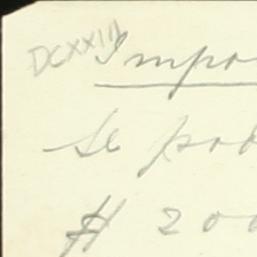 DCXXIII
Impo
Se pod
# 200